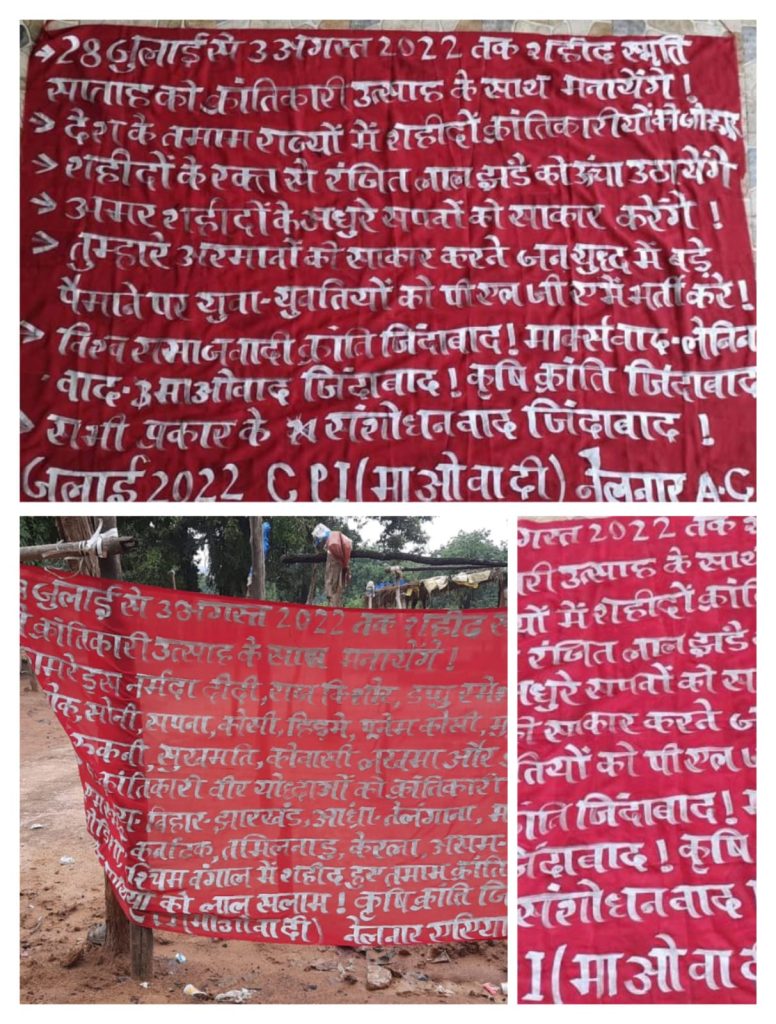 →28 जुलाई से 3 अगस्त 2022 तक शहीद स्मृति
सप्ताह को क्रांतिकारी उत्साह के साथ मनायेंगे !
→ देश के तमाम राज्यों में शहीदों क्रांतिकारीयों को जोहार
→ शहीदों के रक्त से रंजित लाल झडै को ऊंचा उठायेंगे
→ अमर शहीदों के अधुरे सपनों को साकार करेंगे !
→ तुम्हारे अरमानों को साकार करते जनयुद्ध में बड़े
पैमाने पर युवा-युवतियों को पीएलजीए में भर्ती करे !
→ विश्व समाजवादी क्रांति जिंदाबाद ! मार्क्सवाद-लेनिन
वाद-माओवाद जिंदाबाद ! कृषि क्रांति जिंदाबाद
→ सभी प्रकार के संशोधनवाद जिंदाबाद !
जुलाई 2022 CPI (माओवादी) नेलनार A.C
जुलाई से 3 अगस्त 2022 तक शहीद
क्रांतिकारी उत्साह के साथ मनायेंगे !
इस नर्मदा दीदी, राज किशोर,
सोनी सपना, कोसी, हिड़मे, पूनेम कोसी,
रुकनी, सुखमति, कोवासी लखमा और
क्रांतिकारी वीर योद्धाओं को क्रांतिकारी
बिहार-झारखंड, आंध्रा-तेलंगाना,
कर्नाटक, तमिलनाडु, केरला, असम-
श्चिम बंगाल में शहीद हुए तमाम क्रांति
को लाल सलाम ! कृषि क्रांति जिं
(माओवादी) नेलनार एरिया
गस्त 2022 तक श
कारी उत्साह के साथ
यों में शहीदों क्रांति
रंजित लाल झडै
अधुरे सपनों को सा
को साकार करते ज
तियों को पीएल ज
क्रांति जिंदाबाद !
जिंदाबाद ! कृषि
संशोधनवाद
I (माओवादी